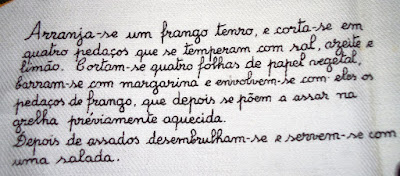 Arranja-se um frango tenro, e corta-se em
quatro pedaços que se temperam com sal, azeite e
limão. Cortam-se quatro folhas de papel vegetal,
barram-se com margarina e envolvem-se com eles os
pedaços de frango, que depois se põem a assar na
grelha préviamente aquecida.
Depois de assados desembrulham-se e servem-se com
uma salada.